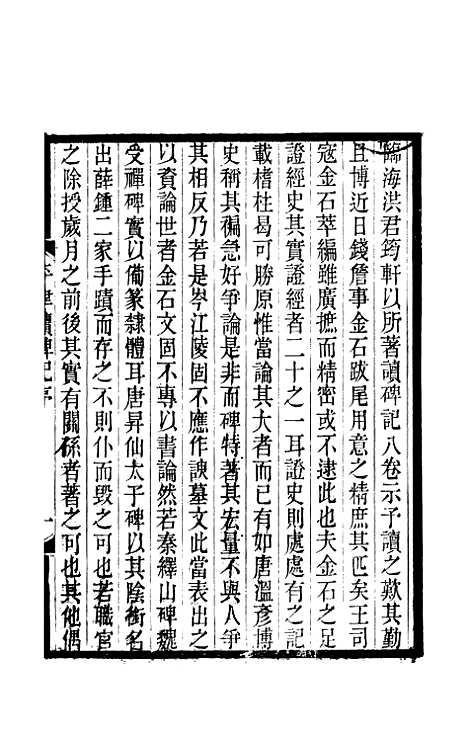 臨海洪君筠軒以所著讀碑記八卷示予讀之歎其勤
且博近日錢詹事金石跋尾用意之精庶其匹矣王司
寇金石萃編雖廣摭而精密或不逮此也夫金石之足
證經史其實證經者二十之一耳證史則處處有之記
載榰柱曷可勝原惟當論其大者而已有如唐溫彥博
史稱其褊急好爭論是非而碑特著其宏量不與人爭
其相反乃若是岑江陵固不應作諛墓文此當表出之
以資論世者金石文固不專以書論然若秦繹山碑魏
受禪碑實以備篆隸體耳唐昇仙太子碑以其陰銜名
出薛鍾二家手蹟而存之不則仆而毀之可也若職官
之除授歲月之前後其實有關係者著之可也其他偶
平津讀碑記序
一